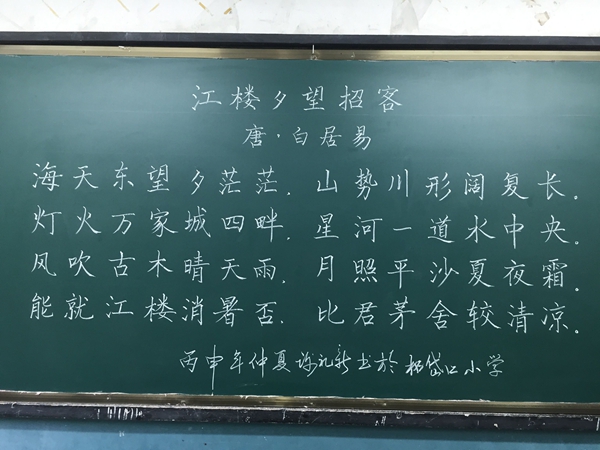 江楼夕望招客
唐·白居易
海天东望夕茫茫，山势川形阔复长。
灯火万家城四畔，星河一道水中央。
风吹古木晴天雨，月照平沙夏夜霜。
能就江楼消暑否，比君茅舍较清凉。
丙申年仲夏 书于 岱口小学